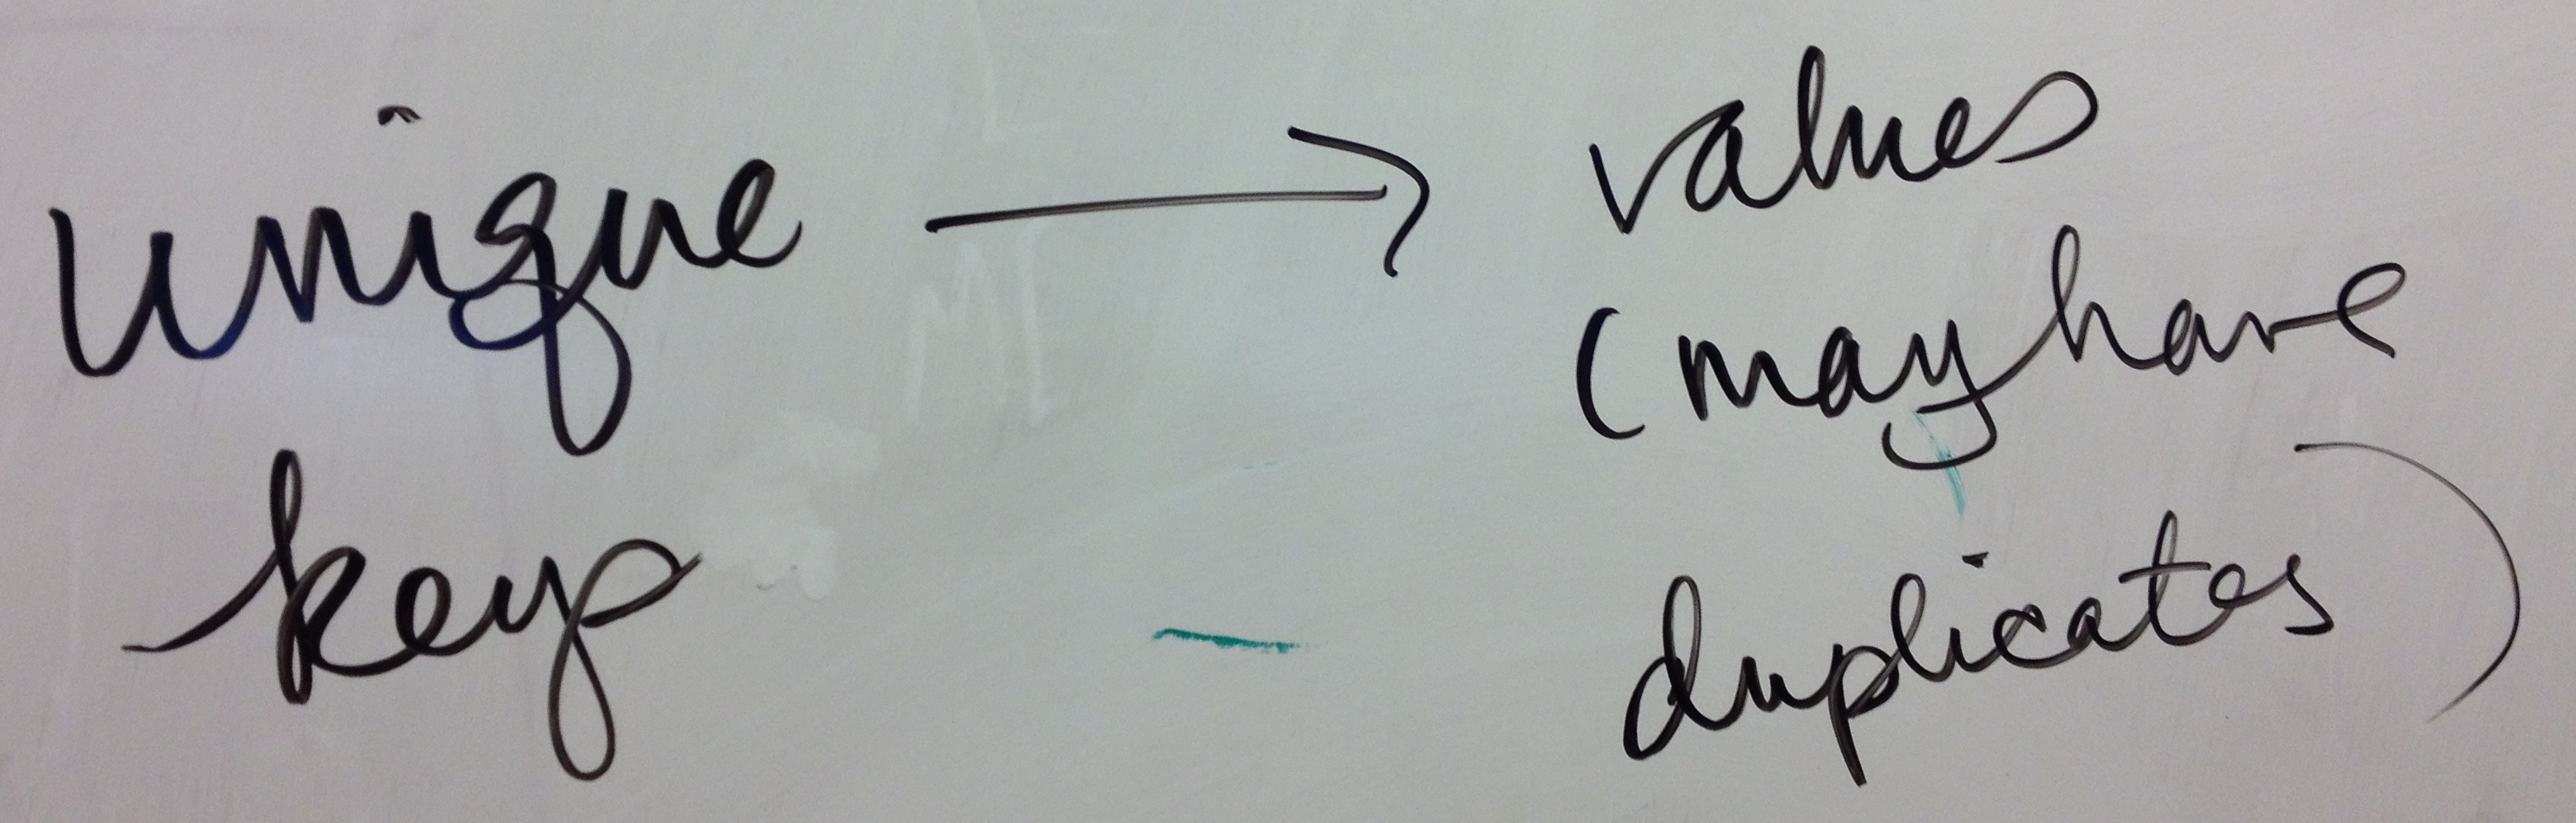 unique → values
(may have
key
duplicates)